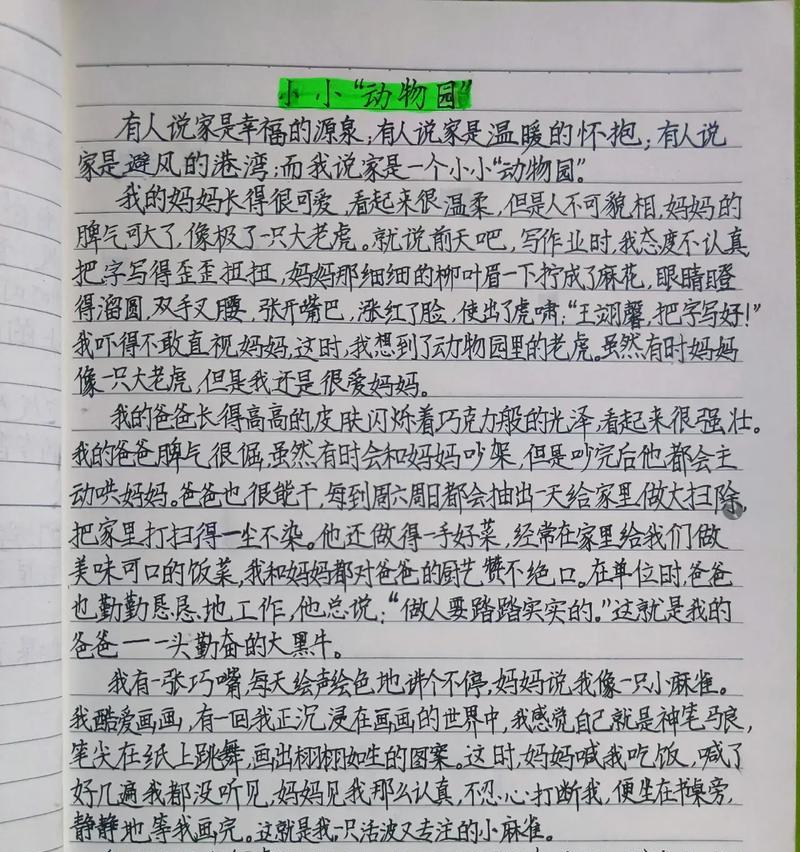 小小“动物园”
有人说家是幸福的源泉；有人说家是温暖的怀抱；有人说
家是避风的港湾；而我说家是一个小小“动物园”。
我的妈妈长得很可爱，看起来很温柔，但是人不可貌相，妈妈的
脾气可大了，像极了一只大老虎。就说前天吧，写作业时，我态度不认真，
把字写得歪歪扭扭，妈妈那细细的柳叶眉一下拧成了麻花，眼睛瞪
得溜圆，双手叉腰，张开嘴巴，涨红了脸，使出了虎啸：“王翊馨，把字写好！”
我吓得不敢直视妈妈，这时，我想到了动物园里的老虎。虽然有时妈妈
像一只大老虎，但是我还是很爱妈妈。
我的爸爸长得高高的皮肤闪烁着巧克力般的光泽，看起来很强壮。
我的爸爸脾气很倔，虽然有时会和妈妈吵架，但是吵完后他都会主
动哄妈妈。爸爸也很能干，每到周六周日都会抽出一天给家里做大扫除，
把家里打扫得一尘不染。他还做得一手好菜，经常在家里给我们做
美味可口的饭菜，我和妈妈都对爸爸的厨艺赞不绝口。在单位时，爸爸
也勤勤恳恳地工作，他总说：“做人要踏踏实实的。”这就是我的
爸爸——一头勤奋的大黑牛。
我有一张巧嘴，每天绘声绘色地讲个不停，妈妈说我像一只小麻雀。
我酷爱画画，有一回我正沉浸在画画的世界中，我感觉自己就是神笔马良，
笔尖在纸上跳舞，画出栩栩如生的图案。这时，妈妈喊我吃饭，喊了
好几遍我都没听见，妈妈见我那么认真，不忍心打断我，便坐在书桌旁，
静静地等我画完。这就是我一只活波又专注的小麻雀。